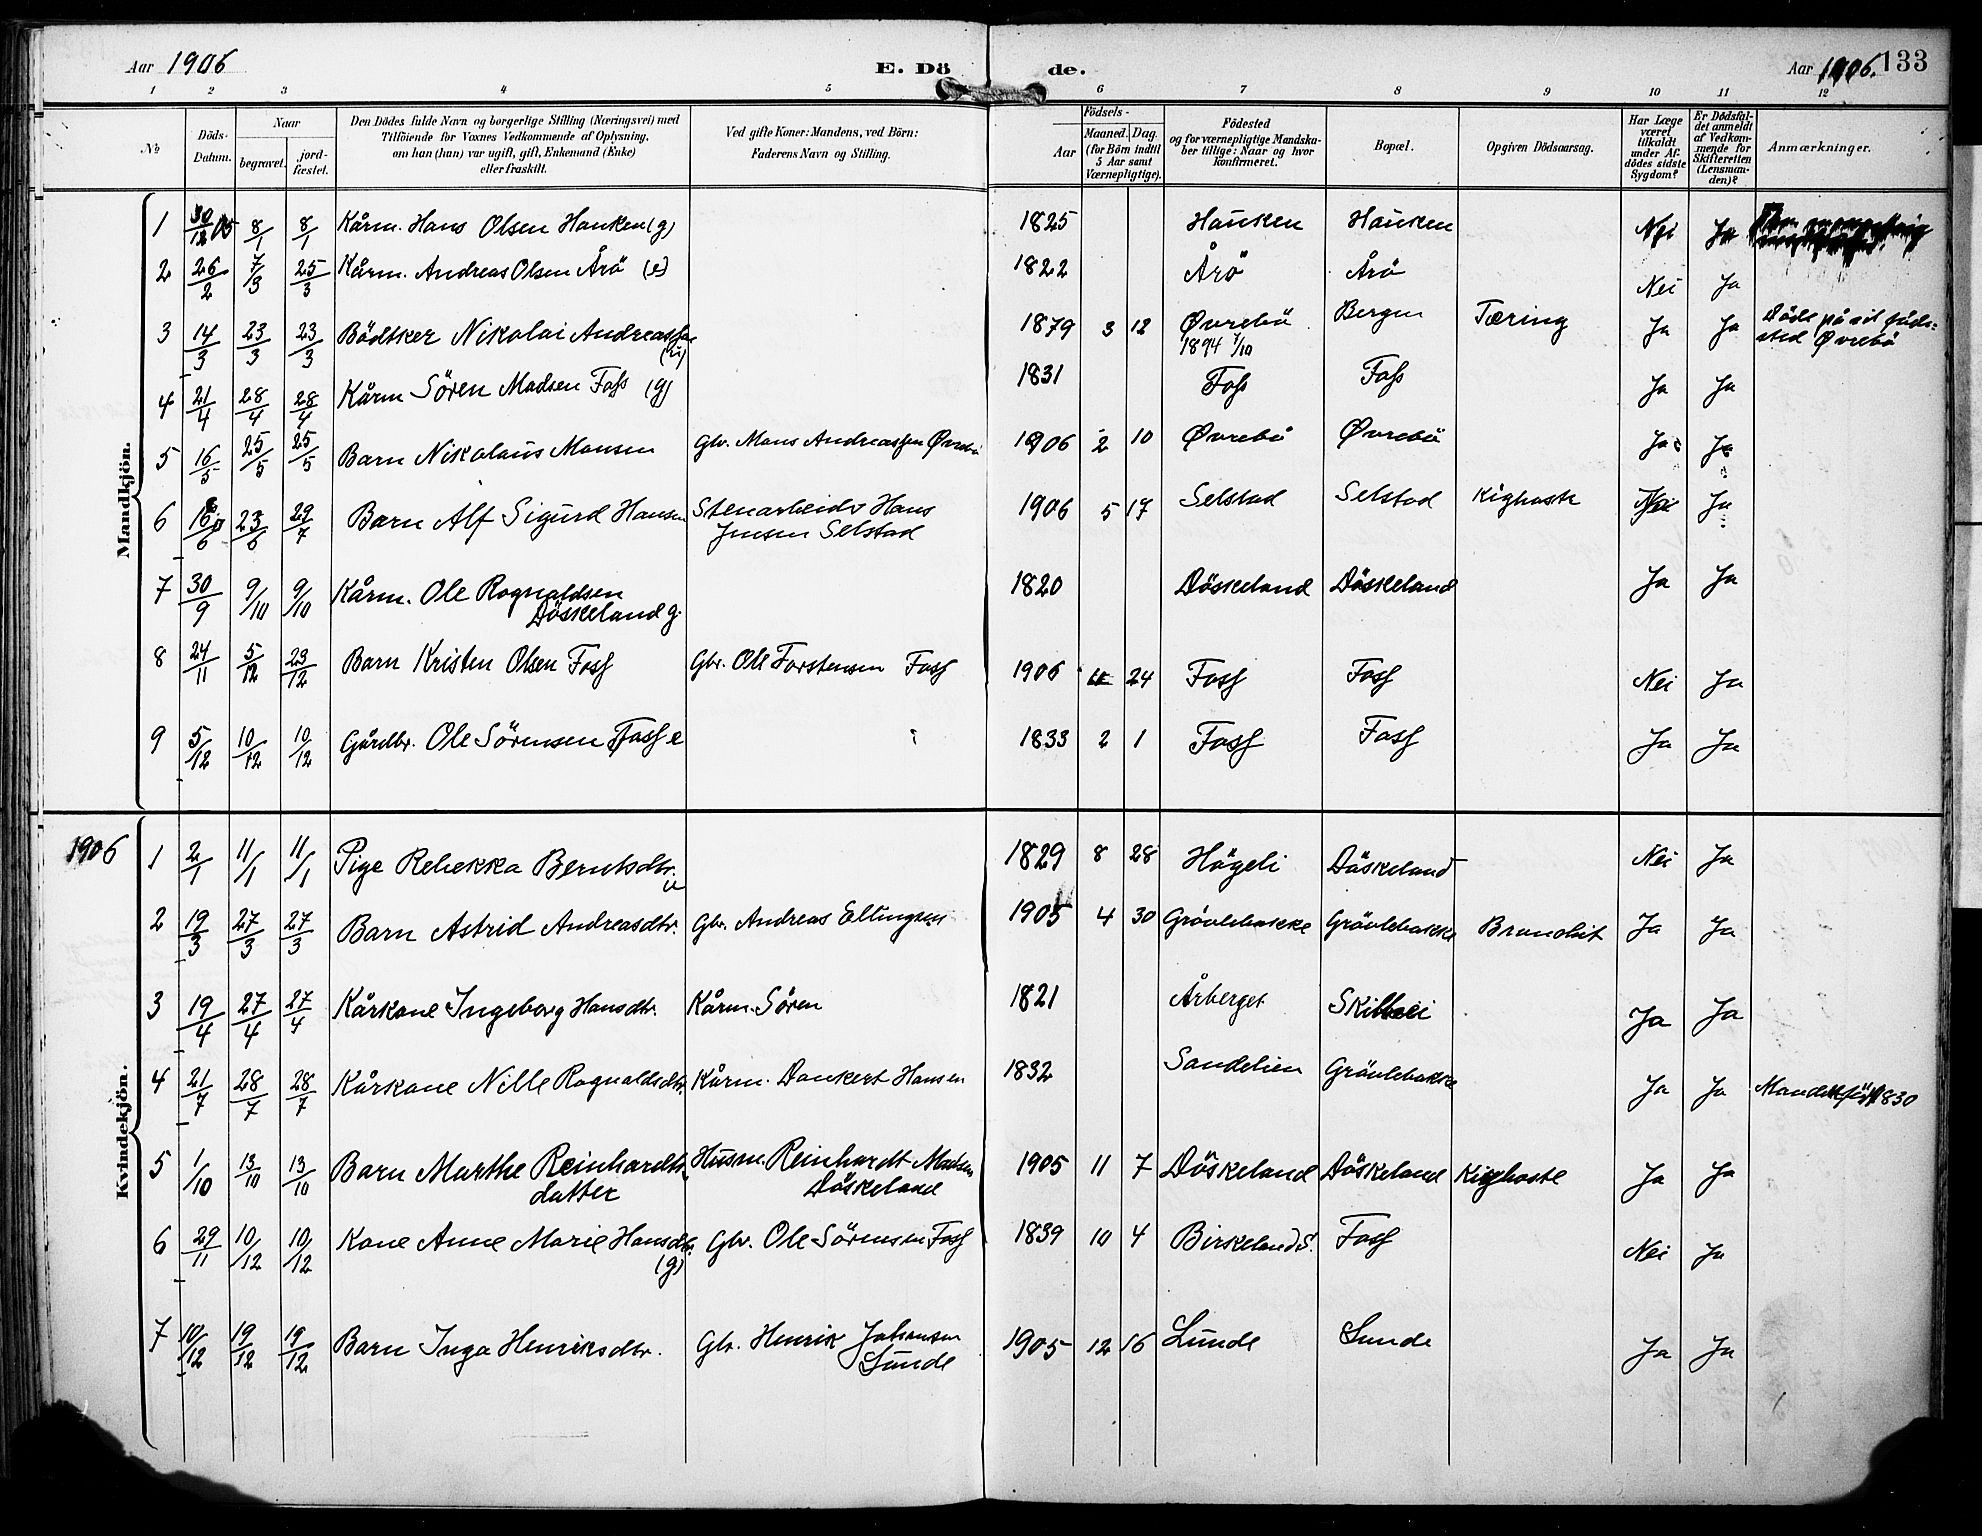 Aar 1906 E. Dö de. Aar 1906. 133
1 2 3 4 5 6 7 8 9 10 11 12
No Döds-Datum. Naar begravet. jord-fæstet. Den Dödes fulde Navn og borgerlige Stilling (Næringsvei) med Tilföiende for Voxnes Vedkommende af Oplysning, om han (hun) var ugift, gift, Enkemand (Enke) eller fraskilt. Ved gifte Koner: Mandens, ved Börn: Faderens Navn og Stilling. Födsels- Aar Maaned. Dag. (for Börn indtil 5 Aar samt Værnepligtige). Födested og for værnepligtige Mandska-ber tillige: Naar og hvor konfirmeret. Bopæl. Opgiven Dödsaarsag. Har Læge været tilkaldt under Af-dödes sidste Sygdom? Er Dödsfal-det anmeldt af Vedkom-mende for Skifteretten (Lensman-den)? Anmærkninger.
Mandkjön.
1 30/12 05 8/1 8/1 Kårm. Hans Olsen Hauken (g) 1825 Hauken Hauken Nei Ja
2 26/2 7/3 25/3 Kårm. Andreas Olsen Årö (e) 1822 Årö Årö Nei Ja
3 14/3 23/3 23/3 Bödtker Nikolai Andreassen (u) 1879 3 12 Øvrebö 1894 7/10 Bergen Tæring Ja Ja Döde på sit föde-
sted Øvrebö
4 21/4 28/4 28/4 Kårm Sören Madsen Foss (g) 1831 Foss Foss Ja Ja
5 16/5 25/5 25/5 Barn Nikolaus Monsen Gbr. Mons Andreassen Øvrebö 1906 2 10 Øvrebö Øvrebö Ja Ja
6 16/6 23/6 29/7 Barn Alf Sigurd Hansen Stenarbeider Hans
Jensen Selstad 1906 5 17 Selstad Selstad Kighoste Nei Ja
7 30/9 9/10 9/10 Kårm. Ole Rognaldsen
Döskeland g. 1820 Döskeland Döskeland Ja Ja
8 24/11 5/12 29/12 Barn Kristen Olsen Foss Gbr. Ole Torstensen Foss 1906 11 24 Foss Foss Nei Ja
9 5/12 10/12 10/12 Gårdbr. Ole Sörensen Foss e 1833 2 1 Foss Foss Ja Ja
1906
Kvindekjön.
1 2/1 11/1 11/1 Pige Rebekka Berntsdtr. u 1829 8 28 Högeli Döskeland Nei Ja
2 19/3 27/3 27/3 Barn Astrid Andreasdtr. Gbr. Andreas Ellingsen 1905 4 30 Grövlebakke Grövlebakke Bronchit Ja Ja
3 19/4 27/4 27/4 Kårkone Ingeborg Hansdtr. Kårm. Sören 1821 Årberget Skilbrei Ja Ja
4 21/7 28/7 28/7 Kårkone Nille Rognaldsdtr. Kårm. Dankert Hansen 1832 Sandelien Grövlebakke Ja Ja Manden föd 1830
5 1/10 13/10 13/10 Barn Marthe Reinhardts
datter Husm. Reinhardt Madsen
Döskeland 1905 11 7 Döskeland Döskeland Kighoste Ja Ja
6 29/11 10/12 10/12 Kone Anne Marie Hansdtr. (g) Gbr. Ole Sörensen Foss 1839 10 4 Birkeland S. Foss Nei Ja
7 10/12 19/12 19/12 Barn Inga Henriksdtr. Gbr. Henrik Johansen
Sunde 1905 12 16 Sunde Sunde Ja Ja